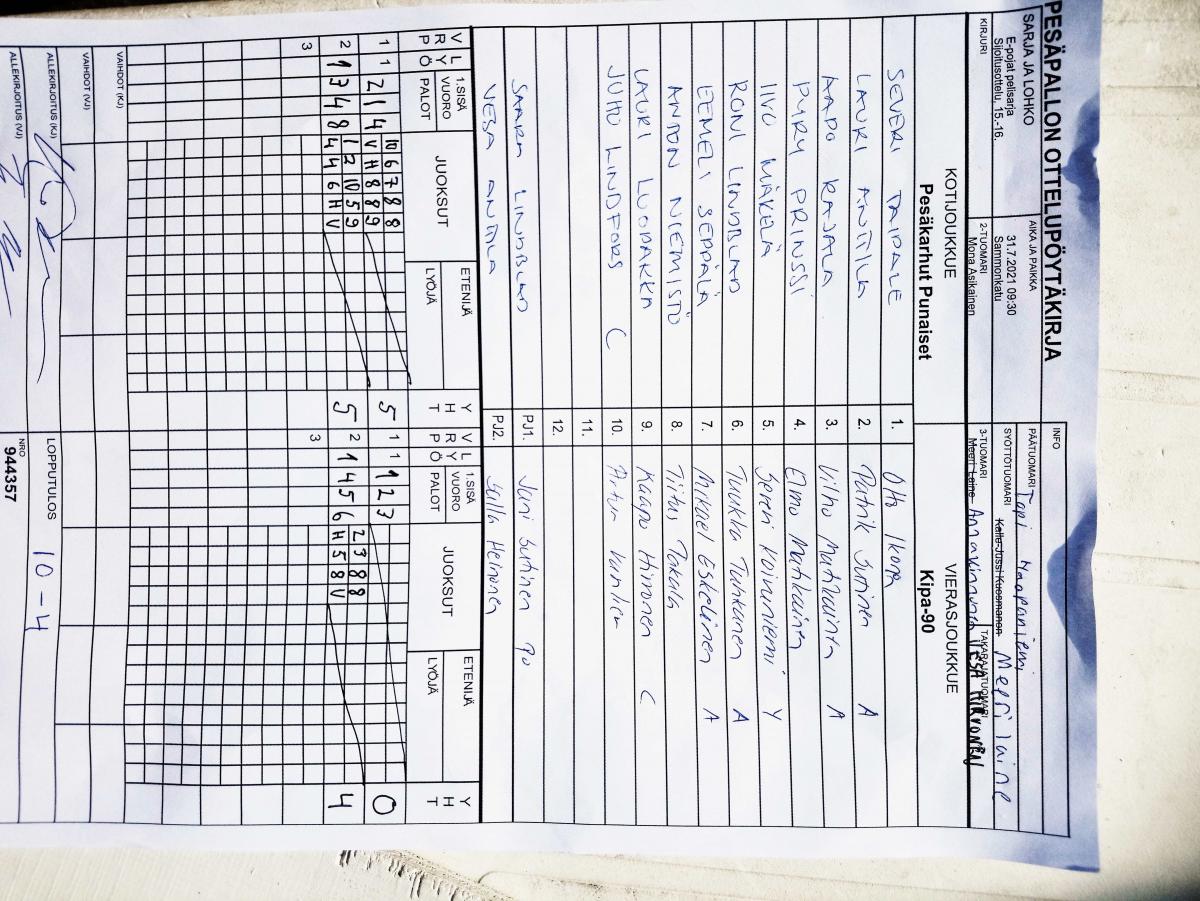 PESÄPALLON OTTELUPÖYTÄKIRJA
SARJA JA LOHKO
E-pojat pelisarja
Sijoitusottelu, 15.-16.
AIKA JA PAIKKA
31.7.2021 09:30
Sammonkatu
INFO
PÄÄTUOMARI Topi Haapaniemi
SYÖTTÖTUOMARI Kalle-Jussi Kuosmanen Meeri Laine
KIRJURI
2-TUOMARI
Mona Asikainen
3-TUOMARI
Meeri Laine
TAKARAJATUOMARI
KOTIJOUKKUE VIERASJOUKKUE
Pesäkarhut Punaiset Kipa-90
SEVERI TAIPALE 1. Otto Ikonen
LAURI ANTTILA 2. Patrik Sutinen A
AAPO RAJALA 3. Vilho Matikainen A
PYRY PRINSSI 4. Elmo Matikainen
IIVO MÄKELÄ 5. Sereri Koivuniemi Y
RONI LINDBLAD 6. Tuukka Turkkanen A
EEMELI SEPPÄLÄ 7. Mikael Eskelinen A
ANTON NIEMISTÖ 8. Tiitus Takala
LAURI LUODAKKA 9. Kaapo Hirvonen C
JUHO LINDFORS C 10.
11.
12.
SAARA LINDBLAD PJ1. Juni Sutinen 90
VESA ANTTILA PJ2. Salla Heinonen
VRP LYÖ 1.SISÄ VUORO PALOT JUOKSUT ETENIJÄ LYÖJÄ YHT VRP LYÖ 1.SISÄ VUORO PALOT JUOKSUT ETENIJÄ LYÖJÄ YHT
10 6 7 8 8
1 1 2 1 4 V H 8 8 9 5 1 1 1 2 3 0
1 2 10 5 9 2 3 8 8
2 1 3 4 8 4 4 6 H V 5 2 1 4 5 6 H 5 8 V 4
3 3
VAIHDOT (KJ)
VAIHDOT (VJ)
ALLEKIRJOITUS (KJ) LOPPUTULOS 10-4
ALLEKIRJOITUS (VJ) NRO
944357